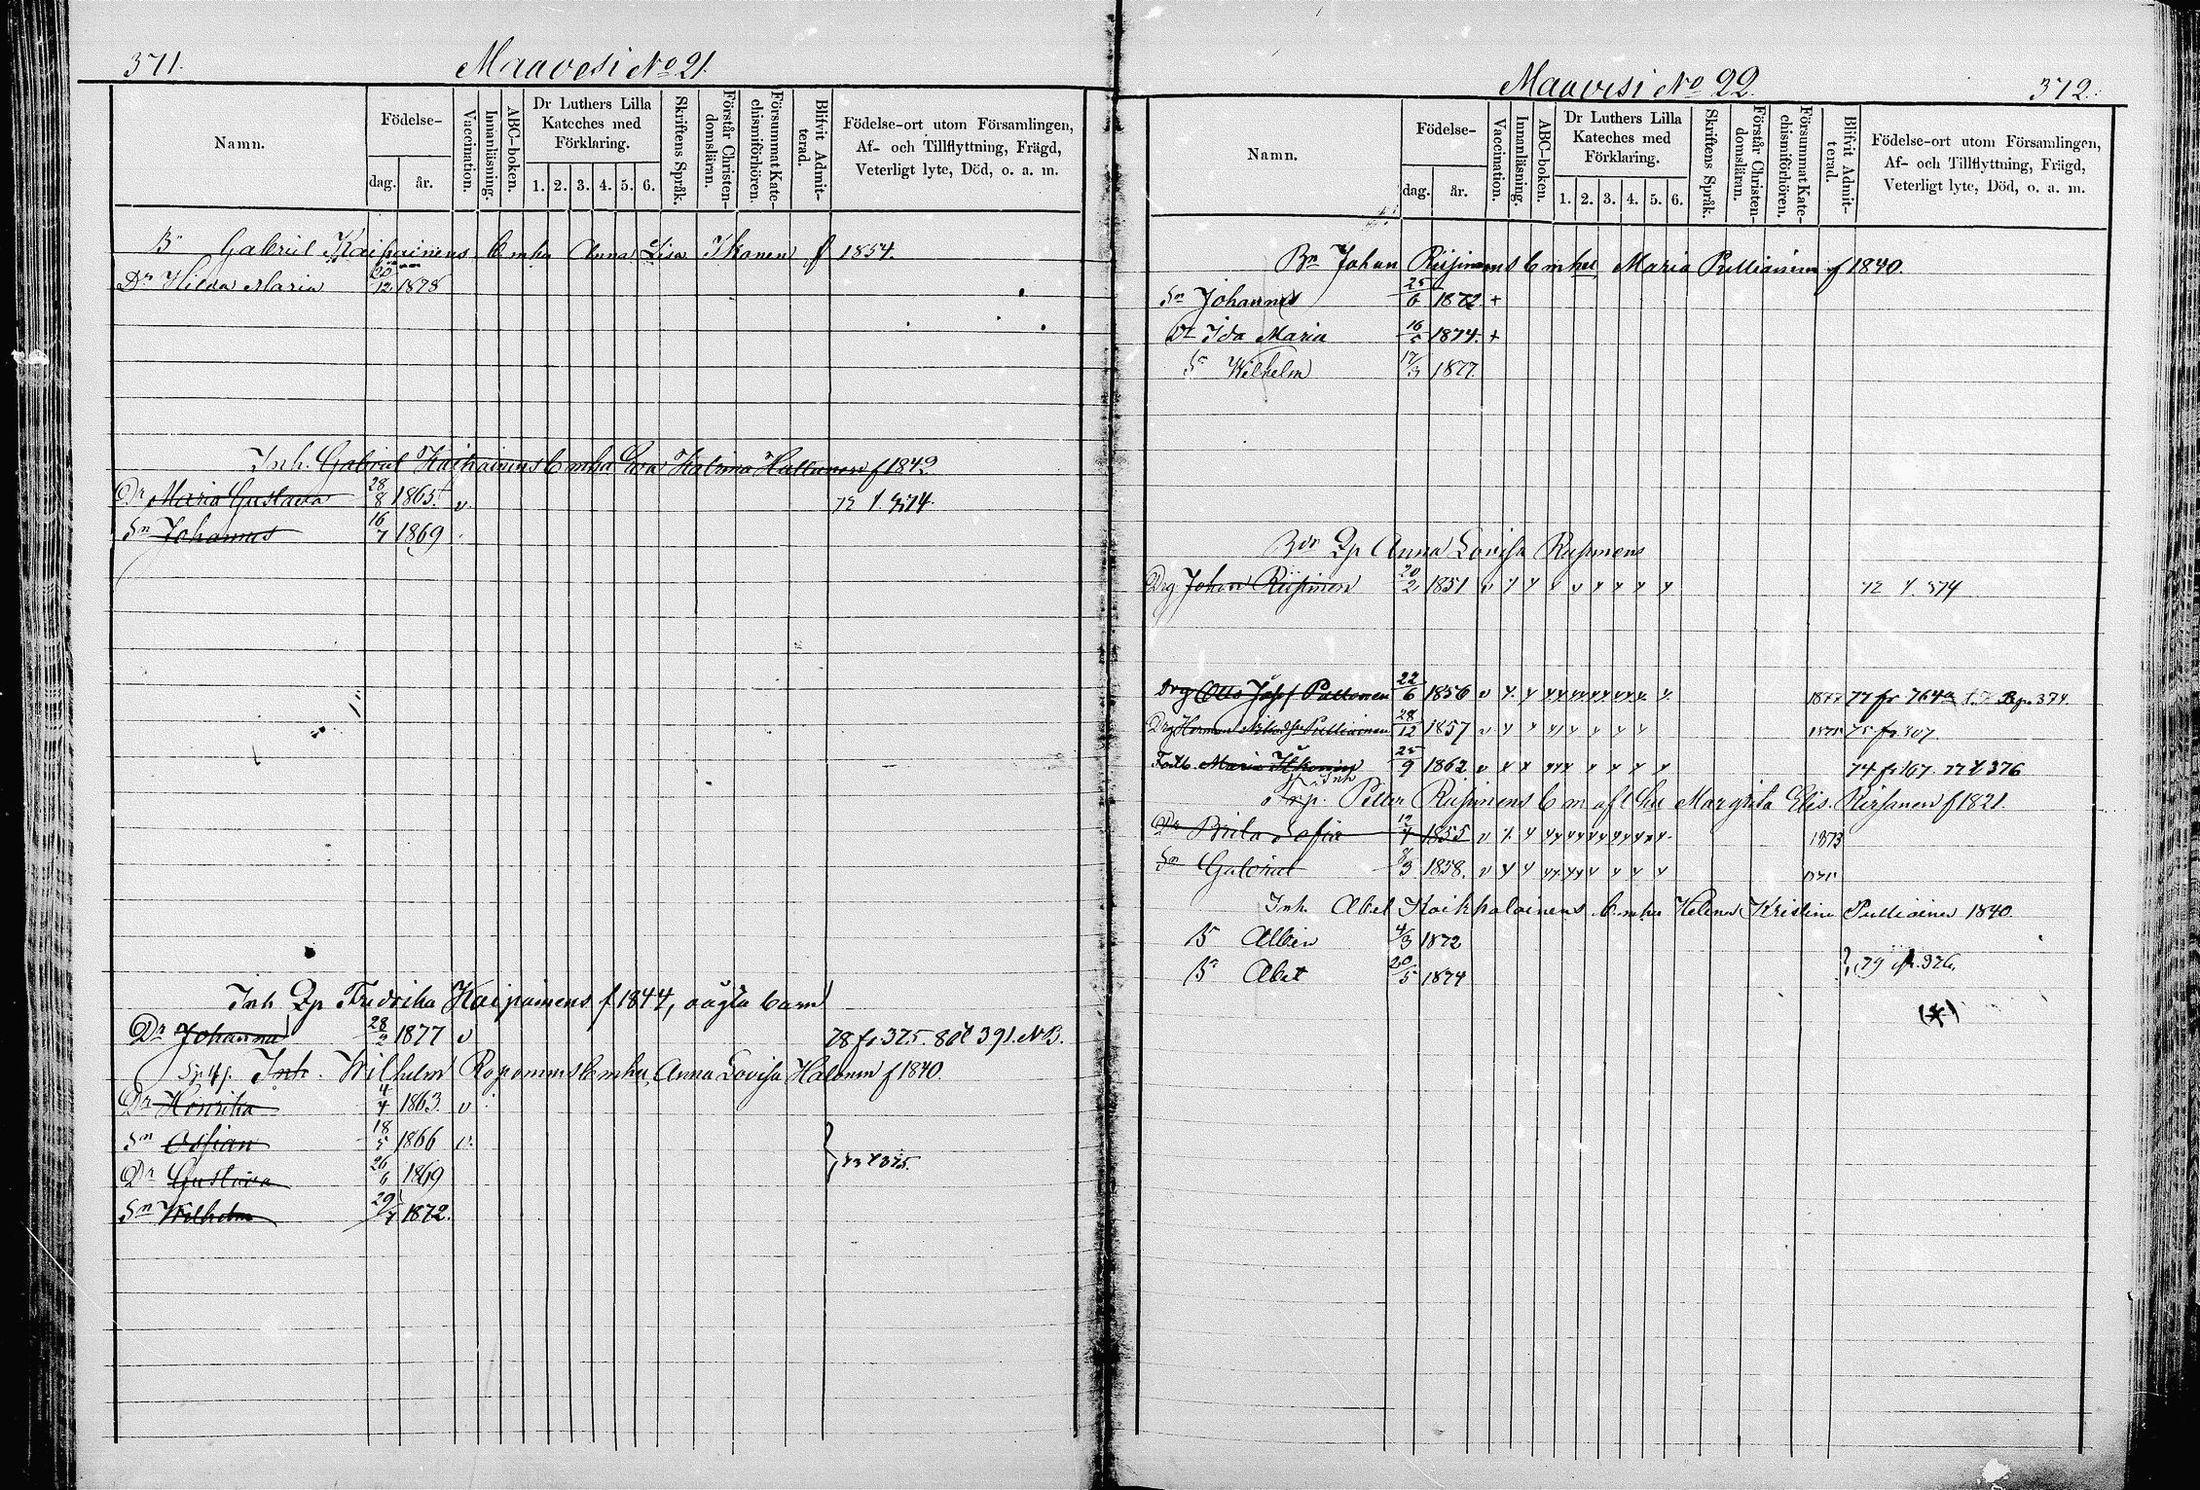 371.
Maavesi No 21.
Namn.
Födelse-
dag.
år.
Vaccination.
Innanläsning.
ABC-boken.
Dr Luthers Lilla
Kateches med
Förklaring.
1. 2. 3. 4. 5. 6.
Skriftens Språk.
Förstår Christen-
domsläran.
Försummat Kate-
chismiförhören.
Blifvit Admit-
terad.
Födelse-ort utom Församlingen,
Af- och Tillflyttning, Frägd,
Veterligt lyte, Död, o. a. m.
Gabriel Kaipainens b mha Anna Lisa Ikonen f 1854.
Dr Hilda Maria 20/12 1878
Inh. Gabriel Kaipainens b mha Eva Katrina Hallonen f 1842
Dr Maria Gustava 28/8 1865. v 72 t. 374.
Sn Johannes 16/7 1869
Inh Qp Fredrika Kaipainens f 1844, oägta barn
Dr Johanna 28/2 1877 v 78 fr. 375. 80 t 391. N.B.
Inh. Wilhelm Roponens b mhu, Anna Lovisa Halonen f 1840.
Dr Henrika 4/4 1863. v
Sn Ossian 18/5 1866 v.
Dr Gustava 26/6 1869
Sn Wilhelm 29/7 1872.
Maavesi No 22.
372.
Namn.
Födelse-
dag.
år.
Vaccination.
Innanläsning.
ABC-boken.
Dr Luthers Lilla
Kateches med
Förklaring.
1. 2. 3. 4. 5. 6.
Skriftens Språk.
Förstår Christen-
domsläran.
Försummat Kate-
chismiförhören.
Blifvit Admit-
terad.
Födelse-ort utom Församlingen,
Af- och Tillflyttning, Frägd,
Veterligt lyte, Död, o. a. m.
Bn Johan Riipinens b mhu, Maria Pulliainen f 1840.
Sn Johannes 25/6 1872 +
Dr Ida Maria 16/5 1874. +
S Wilhelm 17/3 1877.
Qp Anna Lovisa Riipinens
Drg Johan Riipinen 20/2 1851 72 t. 374
Drg Otto Josef Pullonen 22/6 1856 1877 77 fr 764a
Drg Herman Pulliainen 28/12 1857 1875 75 fr. 307.
Maria Ikonen 25/9 1862 74 fr 167. 77 t 376
Petter Riipinens b m afl hu Margreta Elis. Hirvonen f 1821.
Dr Brita Sofia 12/4 1855 1873
Sn Gabriel 8/3 1858.
Inh. Abel Koikkalainens b. mhu Helena Kristina Pulliainen 1840.
S Albin 4/3 1872
S Abel 20/5 1874
79 fr. 376.